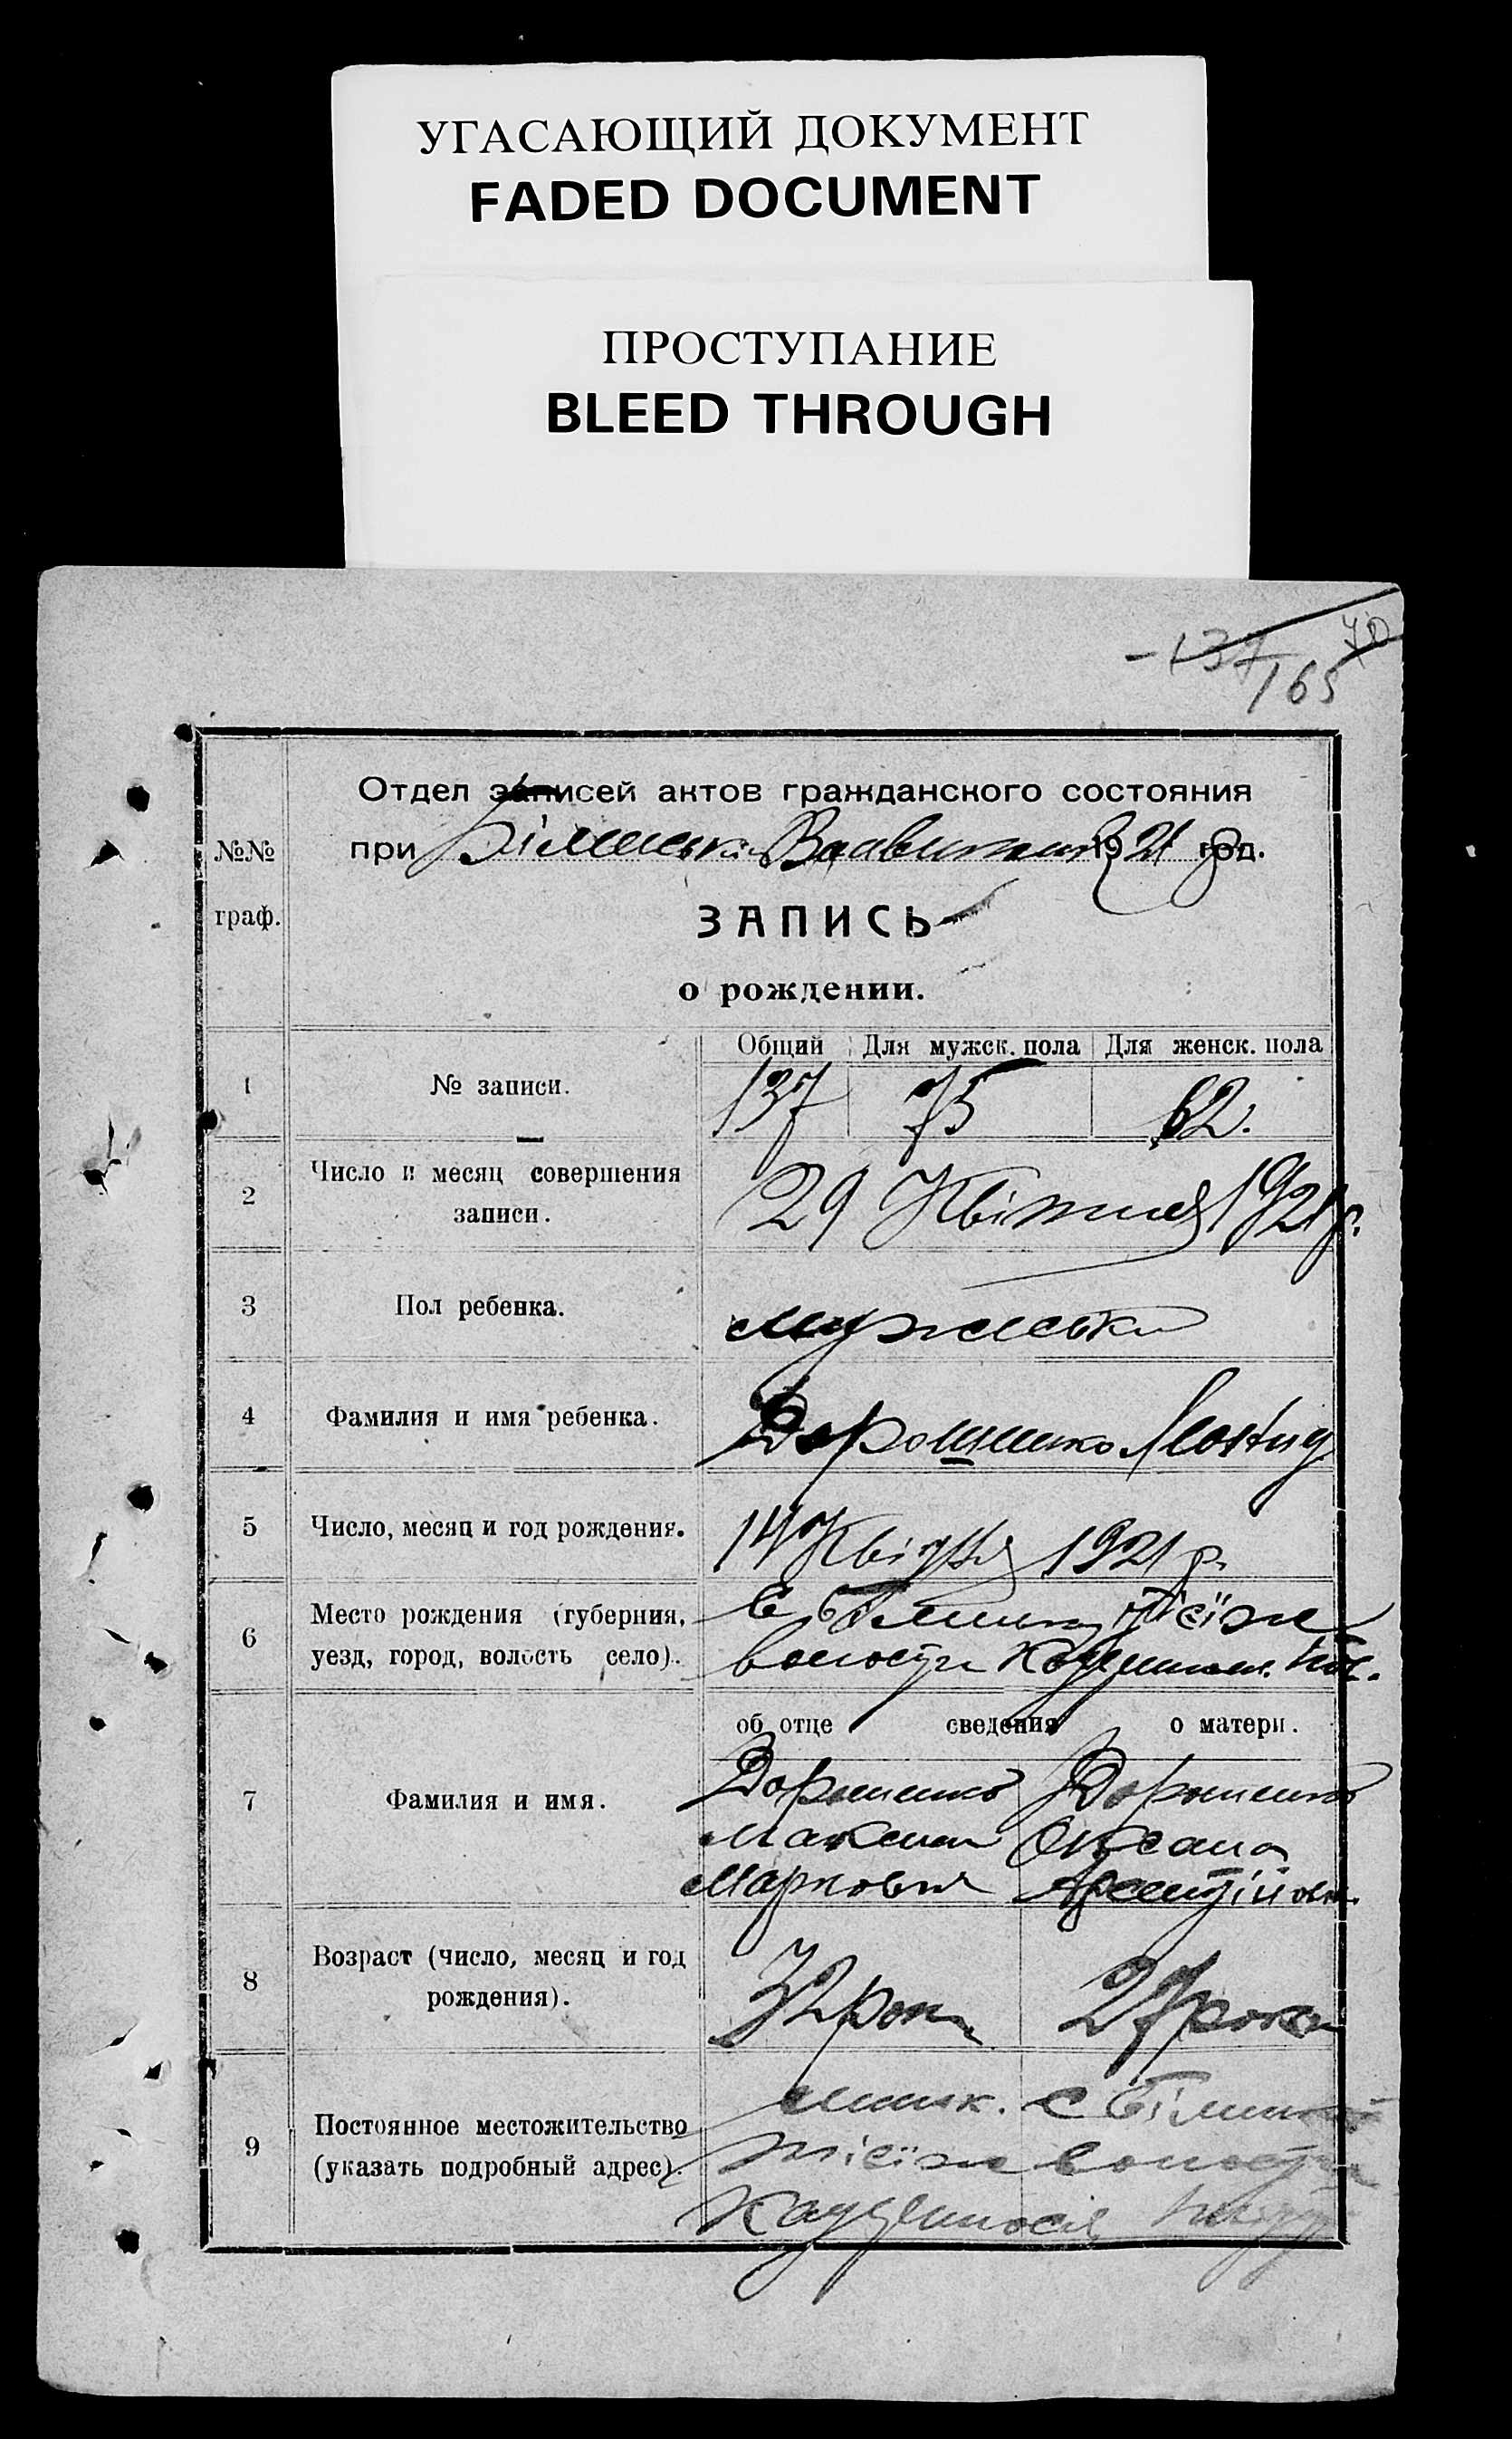 УГАСАЮЩИЙ ДОКУМЕНТ
FADED DOCUMENT
ПРОСТУПАНИЕ
BLEED THROUGH
137 70
165
№№ граф.
Отдел записей актов гражданского состояния
при 1921 год.
ЗАПИСЬ
о рождении.
Общий Для мужск. пола Для женск. пола
1 № записи. 137 75 62.
2 Число и месяц совершения записи. 29 Квітня 1921 р.
3 Пол ребенка. мужеськи
4 Фамилия и имя ребенка. Дорошенко
5 Число, месяц и год рождения. 14 Квітня 1921 р.
6 Место рождения (губерния,
уезд, город, волость село). волости
об отце сведения о матери.
Дорошенко Дорошенко
7 Фамилия и имя. Максим Оксана
Маркович
8 Возраст (число, месяц и год
рождения). 32 роки 27 роки
9 Постоянное местожительство
(указать подробный адрес). волости